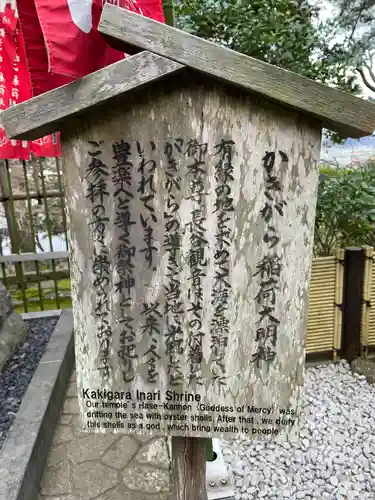 かきがら稲荷大明神
有縁の地を求めて大海を漂流した
御本尊、長谷観音はその付着した
かきがらの導きで当地に漂着した
いわれています。以来、人々を
豊楽へと導く御神としてお祀りし
ご参拝の方々に崇められております
Kakigara Inari Shrine
Our temple's Hase-Kannon (Goddess of Mercy) was
drifting the sea with oyster shells. After that, we deify
this shells as a god, which bring wealth to people.